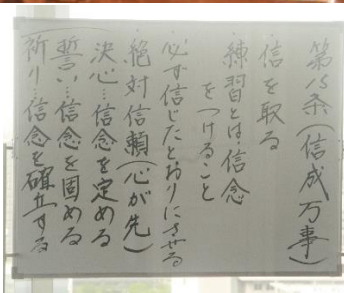 第15条(信成万事)
信を取る
練習とは、信念
をつけること
必ず信じたとおりにさせる
絶対信頼(心が先)
決心…信念を定める
誓い…信念を固める
祈り…信念を確立する